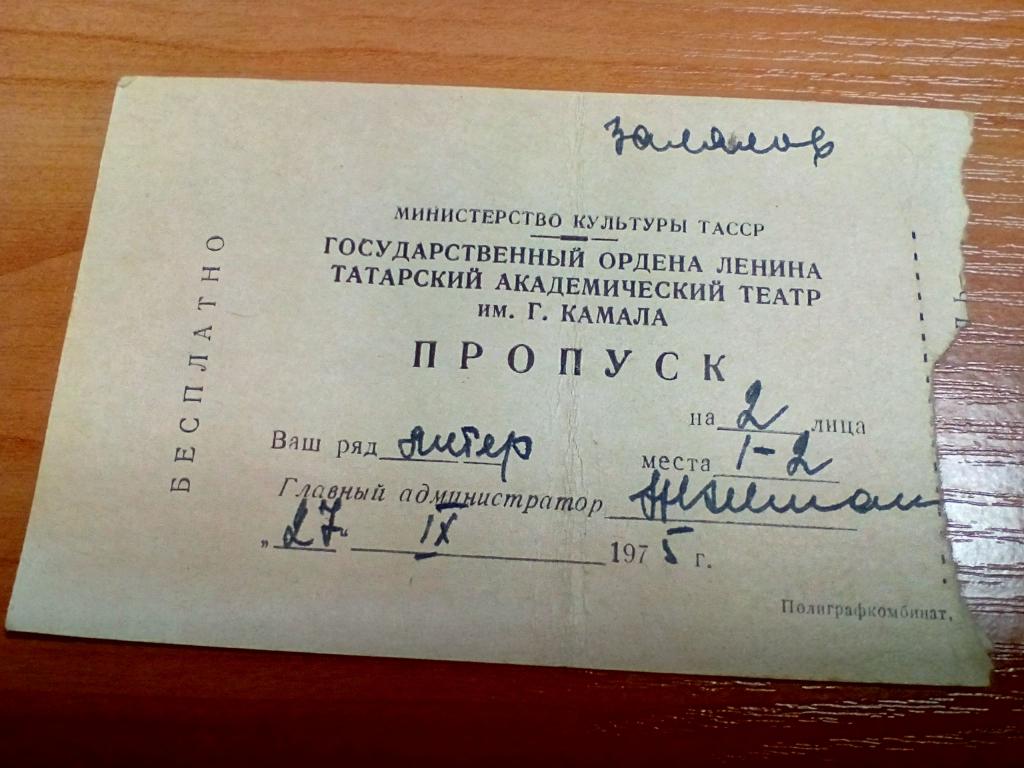 Залялов
МИНИСТЕРСТВО КУЛЬТУРЫ ТАССР
ГОСУДАРСТВЕННЫЙ ОРДЕНА ЛЕНИНА
ТАТАРСКИЙ АКАДЕМИЧЕСКИЙ ТЕАТР
им. Г. КАМАЛА
ПРОПУСК
на 2 лица
Ваш ряд литер места 1-2
Главный администратор
„27“ IX 1975 г.
Полиграфкомбинат,
БЕСПЛАТНО